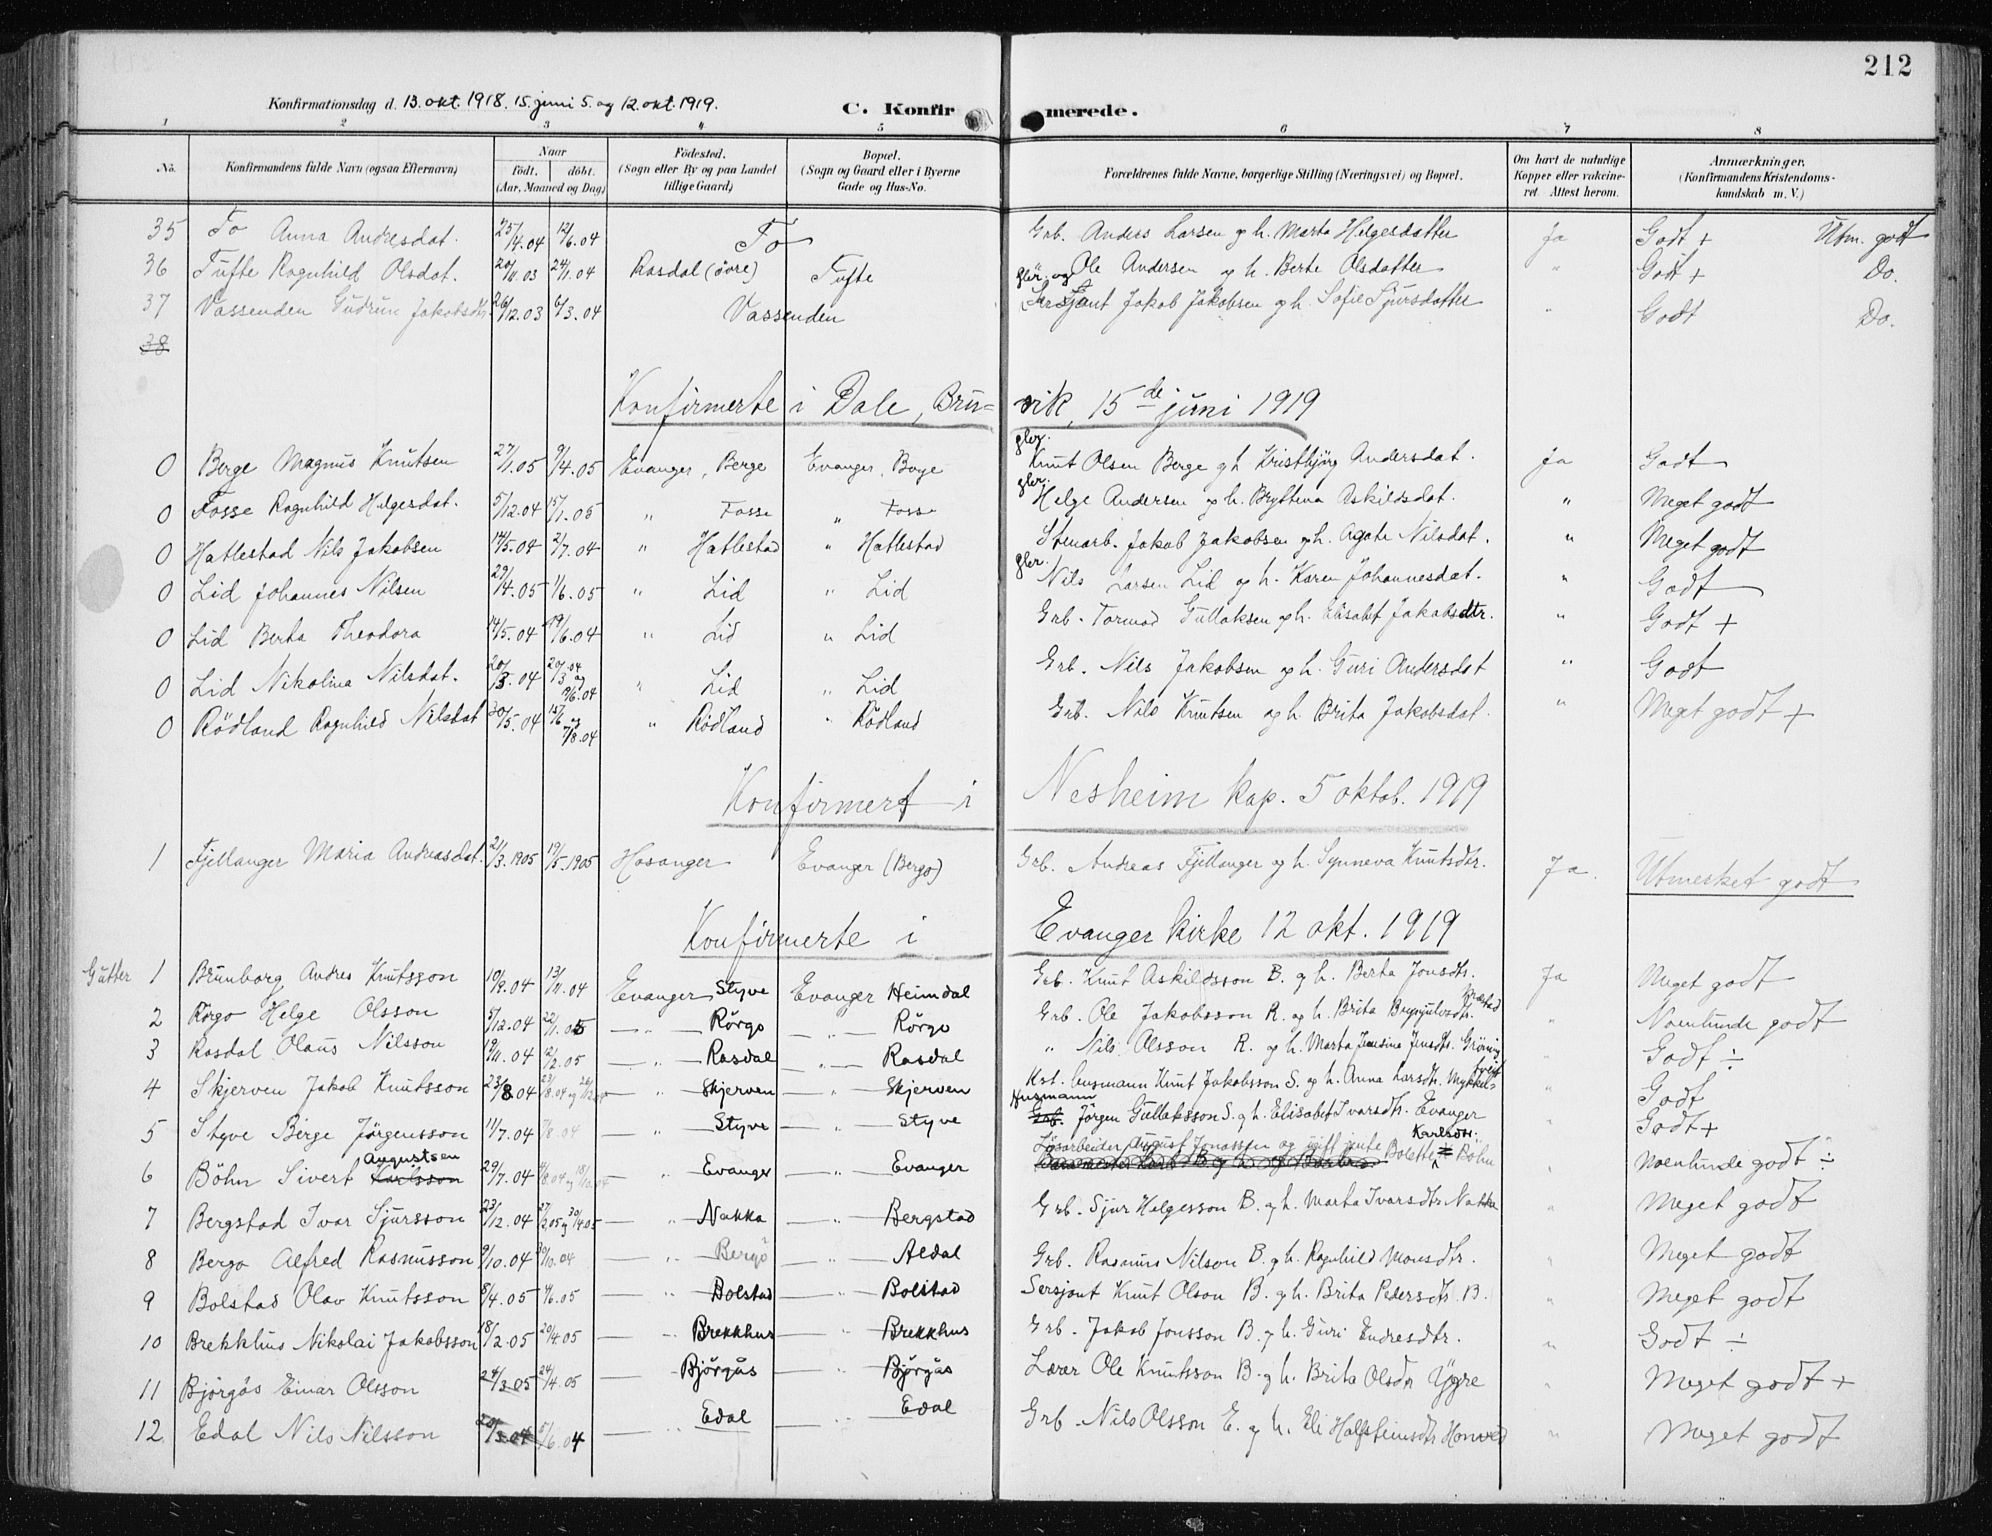 212
Konfirmationsdag d. 13. okt. 1918. 15. juni 5. og 12. okt. 1919. C. Konfirmerede.
1 2 3 4 5 6 7 8
No. Konfirmandens fulde Navn (ogsaa Efternavn) Naar født. døbt. (Aar, Maaned og Dag) Fødested. (Sogn eller By og paa Landet tillige Gaard) Bopæl. (Sogn og Gaard eller i Byerne Gade og Hus-No. Forældrenes fulde Navne, borgerlige Stilling (Næringsvei) og Bopæl. Om havt de naturlige Kopper eller vakcineret. Attest herom. Anmærkninger, (Konfirmandens Kristendomskundskab m. V.)
35 Fo Anna Andresdat. 25/4.04 12/6.04 Fo Grb. Anders Larsen og h. Marta Helgesdatter Ja Godt + Utm. godt
36 Tufte Ragnhild Olsdat. 20/11.03 24/1.04 Rasdal (övre) Tufte " Ole Andersen og h. Berte Olsdatter " Godt + Do.
37 Vassenden Gudrun Jakobsdtr. 26/12.03 6/3.04 Vassenden glbr. og Sersjant Jakob Jakobsen og h. Sofie Sjursdatter " Godt Do.
38
Konfirmerte i Dale, Bruvik, 15de juni 1919
0 Berge Magnus Knutsen 27/1.05 9/4.05 Evanger, Berge Evanger, Berge Knut Olsen Berge og h. Kristbjörg Andersdat. Ja Godt
0 Fosse Ragnhild Helgesdat. 5/12.04 15/1.05 " Fosse " Fosse Helge Andersen og h. Brytteva Askildsdat. " Meget godt
0 Hatlestad Nils Jakobsen 14/5.04 2/7.04 " Hatlestad " Hatlestad Stenarb. Jakob Jakobsen og h. Agate Nilsdat. " Meget godt
0 Lid Johannes Nilsen 29/4.05 1/6.05 " Lid " Lid Nils Larsen Lid og h. Karen Johannesdat. " Godt
0 Lid Berta Theodora 14/5.04 19/6.04 " Lid " Lid Grb. Tormod Gullaksen og h. Elisabet Jakobsdtr. " Godt +
0 Lid Nikolina Nilsdat. 20/3.04 20/3.04 og 19/6.04 " Lid " Lid Grb. Nils Jakobsen og h. Guri Andersdat " Godt
0 Rödland Ragnhild Nilsdat 30/5.04 15/6 og 7/8.04 " Rödland " Rödland Grb. Nils Knutsen og h. Brita Jakobsdat. " Meget godt +
Konfirmert i Nesheim kap. 5 oktob. 1919
1 Fjellanger Maria Andreasdat. 21/3.1905 19/5.1905 Hosanger Evanger (Bergo) Grb. Andreas Fjellanger og h. Synneva Knutsdtr. Ja. Utmerket godt
Konfirmerte i Evanger kirke 12 okt. 1919
Gutter 1 Brunborg Andres Knutsson 19/9.04 13/11.04 Evanger Styve Evanger Heimdal Grb. Knut Askildsson B. og h. Berta Jonsdtr. Ja Meget godt
2 Rörgo Helge Olsson 5/12.04 22/1.05 " Rörgo " Rörgo Grb. Ole Jakobsson R. og h. Brita Brynjulvsdtr. " Noenlunde godt
3 Rasdal Olaus Nilsson 19/11.04 12/2.05 " Rasdal " Rasdal " Nils Olsson R. og h. Marta Jensina Jensdtr. " Godt ÷
4 Skjerven Jakob Knutsson 23/8.04 " Skjerven " Skjerven Kst. husmann Knut Jakobsson S. og h. Anna Larsdtr. " Godt
5 Styve Birge Jörgensson 11/7.04 7/8.04 " Styve " Styve Husmann Grb. Jörgen Gullaksson S. og h. Elisabet Ivarsdtr. Evanger " Godt +
6 Böhn Sivert Karlsson Augustsen 29/7.04 " Evanger " Evanger Lösarbeider August Jonassen og ugift jente Bolette Karlsdtr. Böhn " Noenlunde godt ÷
7 Bergstad Ivar Sjursson 23/12.04 " Nakka " Bergstad Grb. Sjur Helgesson B. og h. Marta Ivarsdtr. Nakka " Meget godt
8 Bergo Alfred Rasmusson 9/10.04 30/10.04 " Bergö " Aldal Grb. Rasmus Nilson B. og h. Ragnhild Monsdtr. " Meget godt
9 Bolstad Olav Knutsson 8/4.05 4/6.05 " Bolstad " Bolstad Sersjant Knut Olson B. og h. Brita Pedersdtr. B. " Meget godt
10 Brekkhus Nikolai Jakobsson 18/2.05 20/4.05 " Brekkhus " Brekkhus Grb. Jakob Jonsson B. og h. Guri Endresdtr. " Godt ÷
11 Bjørgås Einar Olsson 24/3.05 24/4.05 " Bjørgås " Bjørgås Lærer Ole Knutsson B. og h. Brita Olsdtr Ygre " Meget godt +
12 Edal Nils Nilsson 5/6.04 " Edal " Edal Grb. Nils Olsson E. og h. Eli Halsteinsdtr. Horvei " Meget godt